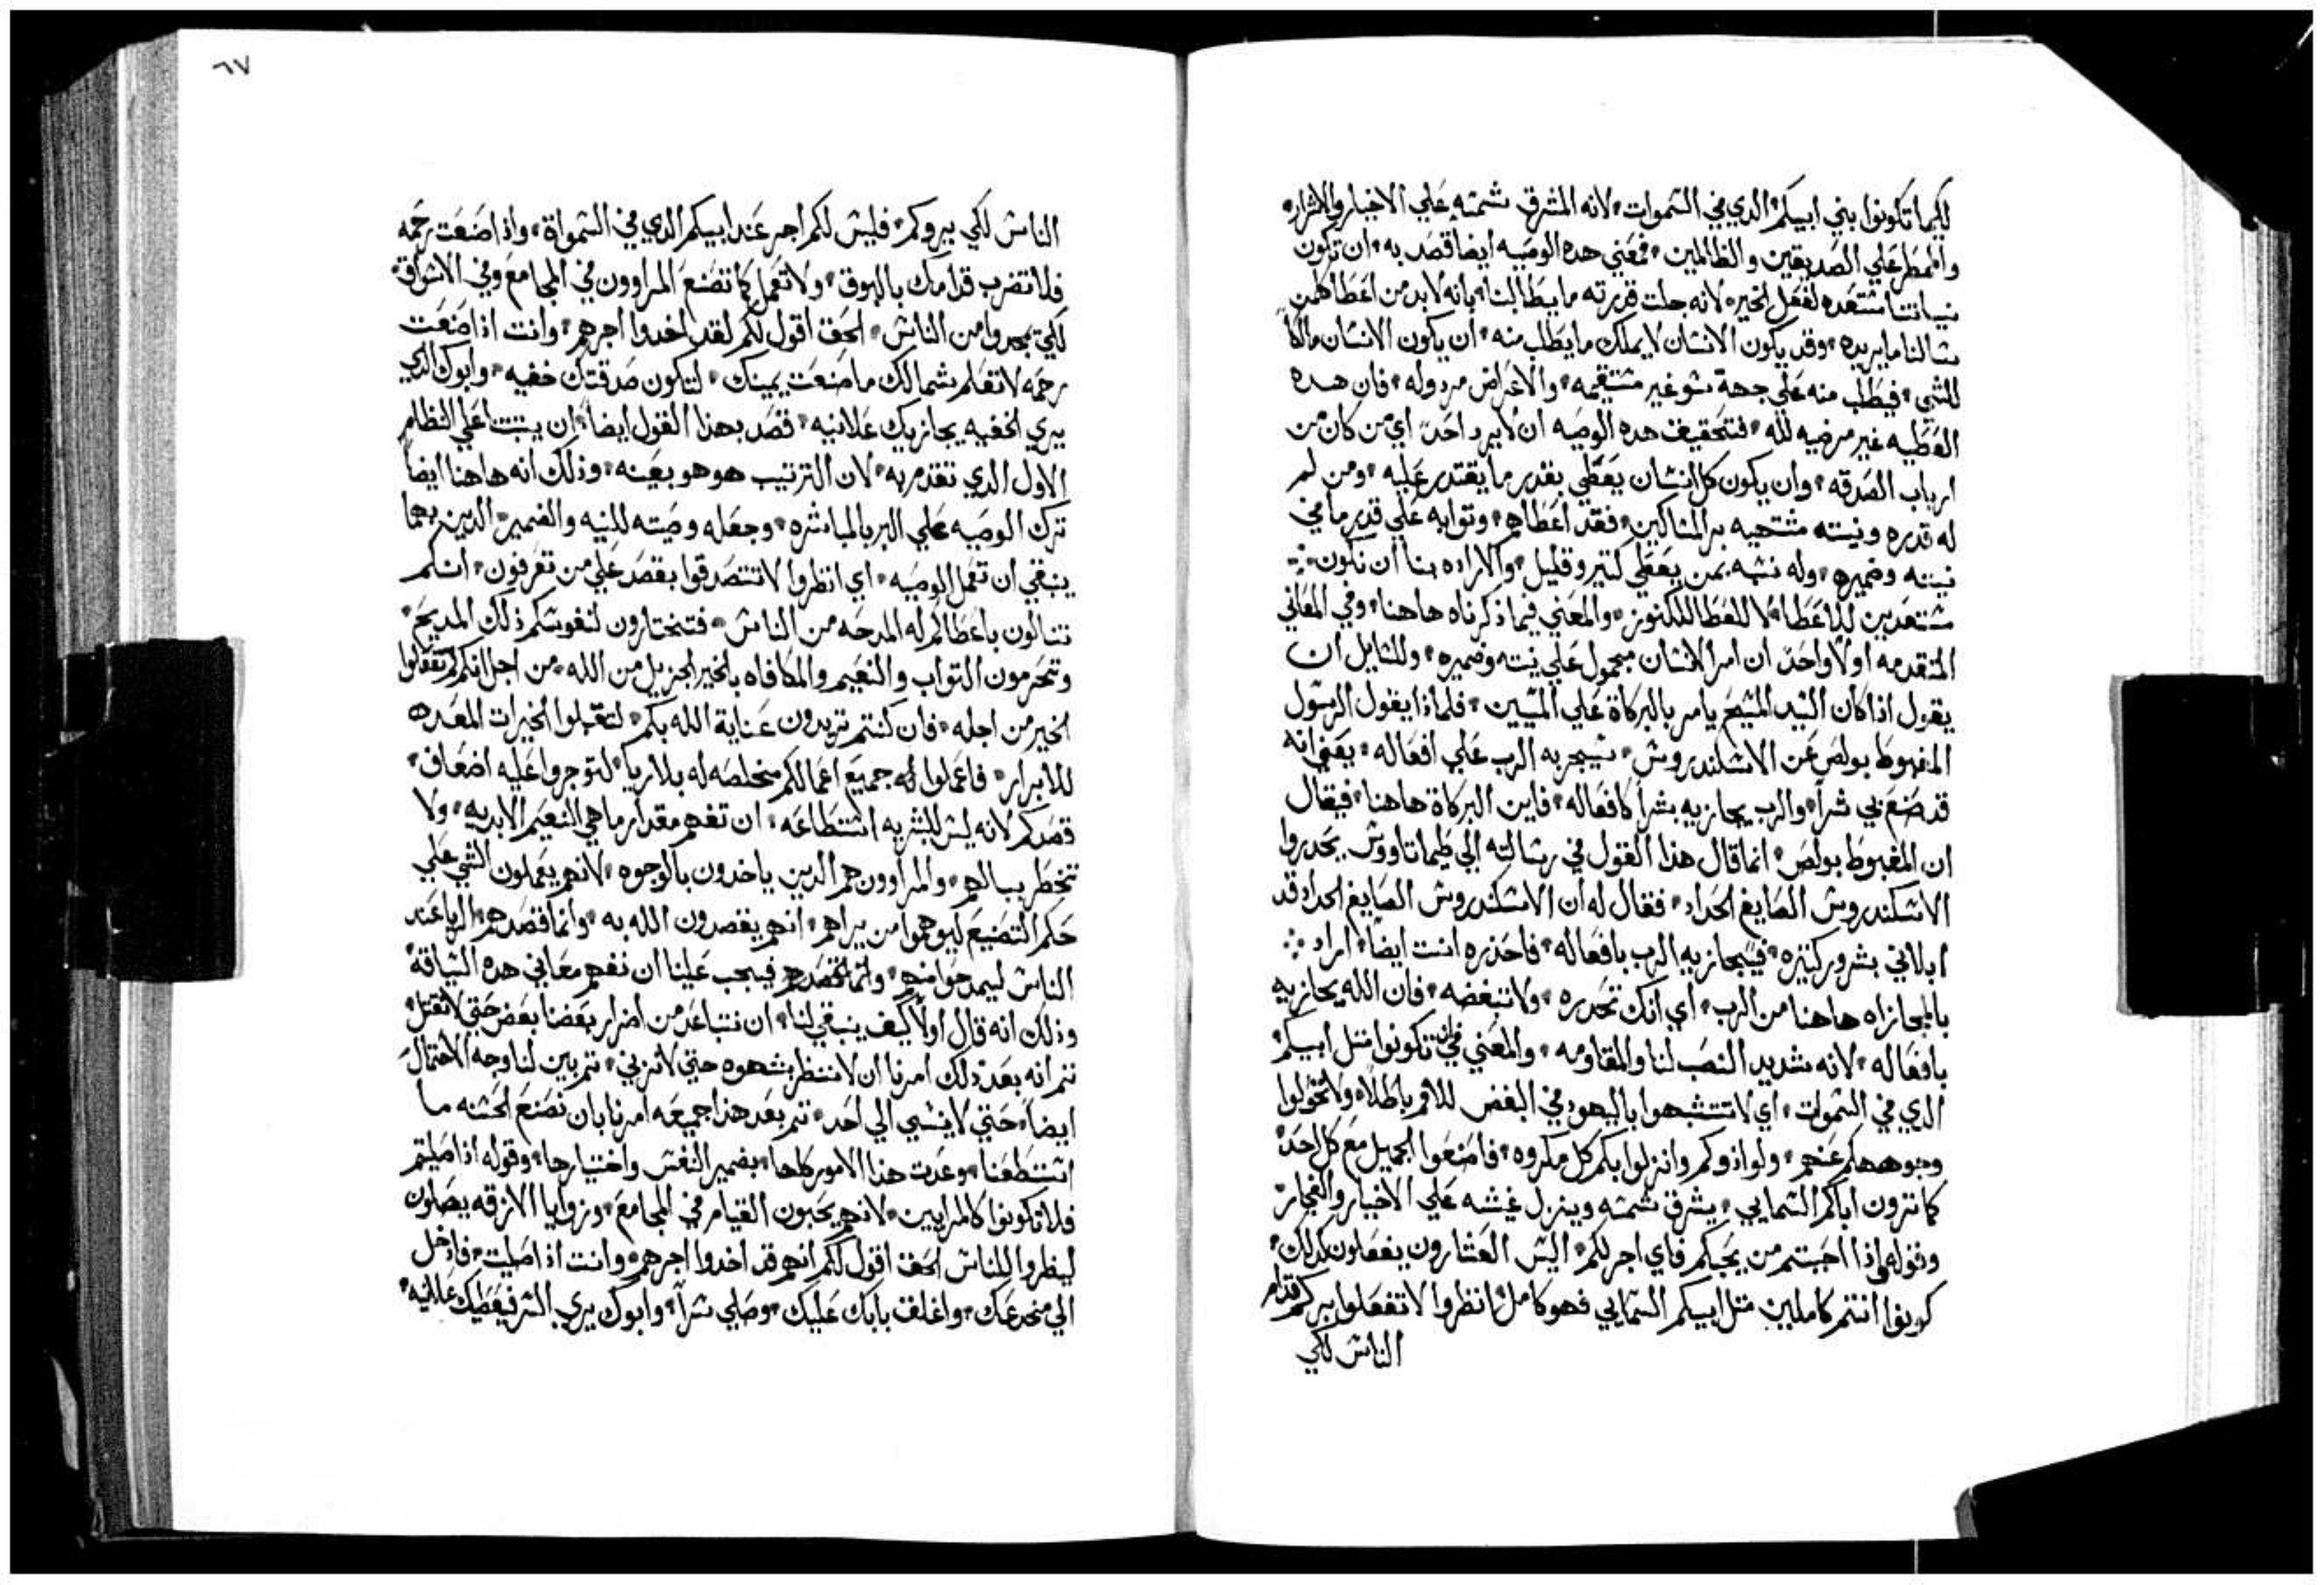 لكيما تكونوا بني ابيكم الدي في السموات لانه المشرق شمسه علي الاخيار والاشرار
والممطر علي الصديقين والظالمين فمعني هده الوصيه ايضا قصد به ان تكون
نياتنا مستعده لفعل الخير لانه جلت قدرته ما يطالبنا بانه لابد من اعطا كلمن
سالنا ما يريده وقد يكون الانسان لا يملك ما يطلب منه ان يكون الانسان مالكاً
للشي فيطلب منه علي جهة سو غير مستقيمه والاعراض مردوله فان هده
العطيه غير مرضيه لله فتحقيق هده الوصيه ان لا يرد احدٌ اي من كان من
ارباب الصدقه وان يكون كل انسان يعطي بقدر ما يقتدر عليه ومن لم
له قدره ونيته مستحيه بر المساكين فقد اعطاهم وتوابه علي قدر ما في
نيته وضميره وله نسبه بمن يعطي كتير وقليل والاراده منا ان نكون
مستعدين للاعطا لا للعطا للكنوز والمعني فيما ذكرناه هاهنا وفي المعاني
المتقدمه اولاً واحدٌ ان امر الانسان محمول علي نيته وضميره وللسايل ان
يقول اذا كان السيد المسيح يامر بالبركاة علي المسيين فلماذا يقول الرسول
المغبوط بولص عن الاسكندروس سيجربه الرب علي افعاله يعني انه
قد صنع بي شراً والرب يجازيه بشراً كافعاله فاين البركاة هاهنا فيقال
ان المغبوط بولص انما قال هذا القول في رسالته الي طيماتاووس يحدروا
الاسكندروس الصايغ الحداد فقال له ان الاسكندروس الصايغ الحداد قد
ابلاني بشرور كتيره فيجازيه الرب بافعاله فاحذره انت ايضاً اراد
بالمجازاه هاهنا من الرب اي انك تحدره ولا تبغضه فان الله يجازيه
بافعاله لانه شديد النصب لنا والمقاومه والمعني في ان تكونوا متل ابيكم
الدي في السموات اي لا تتشبهوا باليهود في البغض للامم باطلاً ولا تحولوا
وجوههكم عنهم ولو اذوكم وانزلوا بكم كل مكروه فاصنعوا الجميل مع كل احدٌ
كما ترون اباكم السمايي يشرق شمسه وينزل غيثه علي الاخيار والفجار
وقوله اذا احببتم من يحبكم فاي اجر لكم اليس العشارون يفعلون كدلك
كونوا انتم كاملين متل ابيكم السمايي فهو كامل انظروا لا تفعلوا بركم قدام
الناس لكي
٦٧
الناس لكي يروكم فليس لكم اجر عند ابيكم الدي في السمواة واذا صنعت رحمه
فلا تضرب قدامك بالبوق ولا تعمل كما تصنع المراوون في المجامع وفي الاسواق
لكي يمجدوا من الناس الحق اقول لكم لقد اخدوا اجرهم وانت اذا صنعت
رحمه لا تعلم شمالك ما صنعت يمينك لتكون صدقتك خفيه وابوك الدي
يري الخفيه يجازيك علانيه فقصد بهذا القول ايضاً ان يتبتنا علي النظام
الاول الدي تقدم به لان الترتيب هو هو بعينه وذلك انه هاهنا ايضاً
ترك الوصيه علي البر بالمباشره وجعله وصيته للنيه والضمير الدين بهما
ينبغي ان تعمل الوصيه اي انظروا لا تتصدقوا بقصد علي من تعرفون انكم
تنالون باعطالكم له المدحه من الناس فتختارون لنفوسكم ذلك المديح
وتحرمون التواب والنعيم والمكافاه بالخير الجزيل من الله من اجل انكم لم تفعلوا
الخير من اجله فان كنتم تريدون عناية الله بكم لتقبلوا الخيرات المعده
للابرار فاعملوا له جميع اعمالكم مخلصه له بلا ريا لتوجروا عليه اضعاف
قصدكم لانه ليس للبشريه استطاعه ان تفهم مقدار ما هي النعيم الابديه ولا
تخطر ببالهم والمراوون هم الدين ياخدون بالوجوه لانهم يعملون الشي علي
حكم التصنيع ليوهموا من يراهم انهم يقصدون الله به وانما قصدهم الريا عند
الناس ليمدحوا منهم فيجب علينا ان نفهم معاني هده السياقة
وذلك انه قال اولاً كيف ينبغي لنا ان نتباعد من اضرار بعضنا بعض حتي لا نقتل
تم انه بعد ذلك امرنا ان لا ننظر بشهوه حتي لا نزني تم بين لنا وجه الاحتمال
ايضاً حتي لا ينسي الي احد تم بعد هذا جميعه امرنا بان نصنع الحسنه ما
استطعنا وعدت هذا الامور كلها بضمير النفس واختيارها وقوله اذا صليتم
فلا تكونوا كالمرايين لانهم يحبون القيام في المجامع وزوايا الازقه يصلون
ليظروا للناس الحق اقول لكم انهم قد اخدوا اجرهم وانت اذا صليت فادخل
الي مخدعك واغلق بابك عليك وصلي سراً وابوك يري السر فيعطيك علانيه